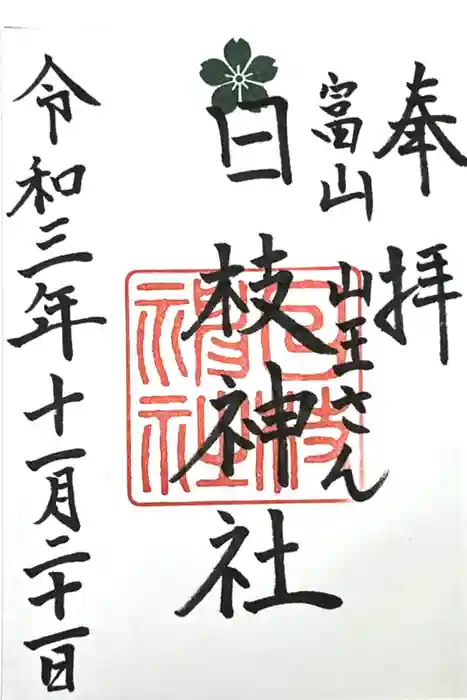 奉拝
富山
山王さん
日枝神社
令和三年十一月二十一日